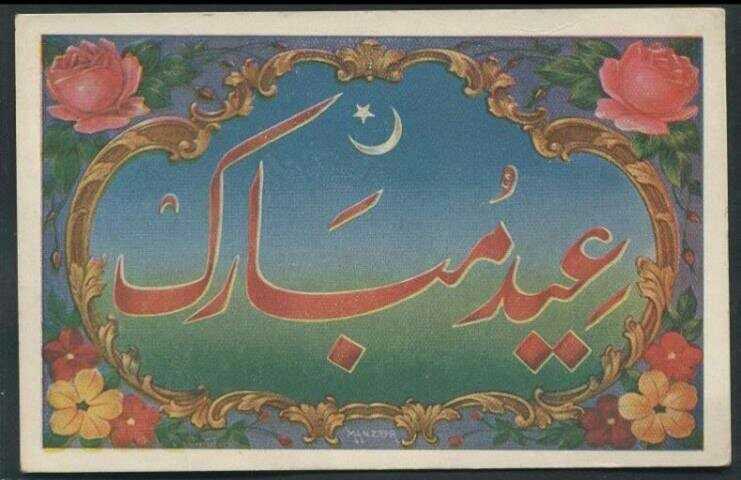 عِیدمُبَارک
MANZAR